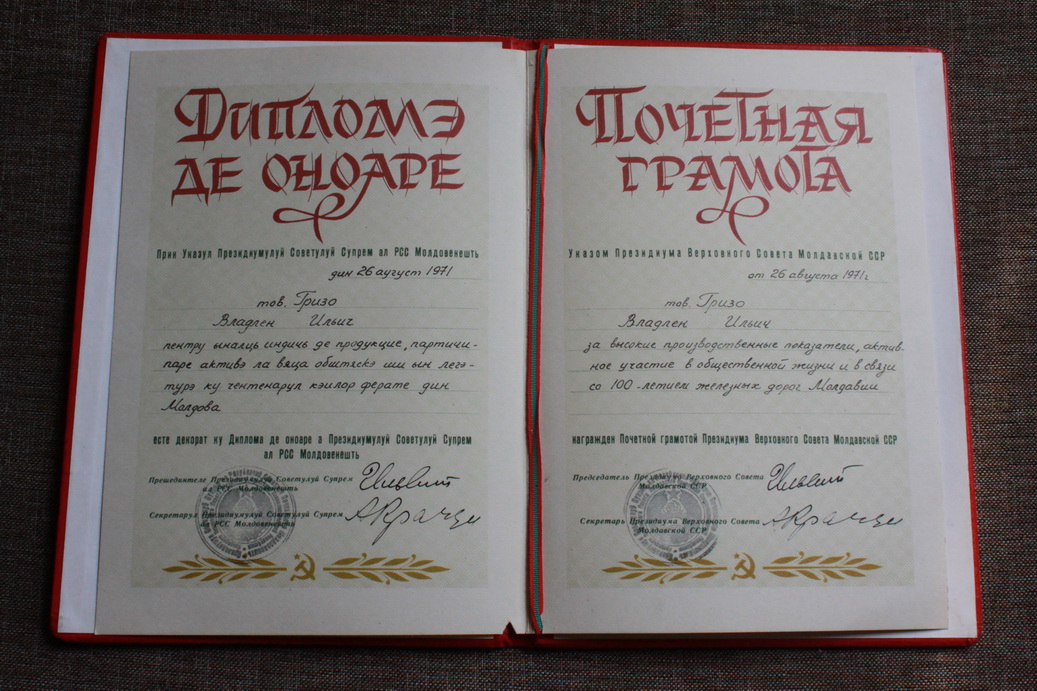 Дипломэ
де оноаре
Прин Указул Президиумулуй Советулуй Супрем ал РСС Молдовенешть
дин 26 аугуст 1971
тов. Гризо
Владлен Ильич
пентру ыналць индичь де продукцие, партичи-
паре активэ ла вяца обштяскэ ши ын легэ-
турэ ку чентенарул кэилор ферате дин
Молдова
есте декорат ку Диплома де оноаре а Президиумулуй Советулуй Супрем
ал РСС Молдовенешть
Прешединтеле Президиумулуй Советулуй Супрем
ал РСС Молдовенешть
Секретарул Президиумулуй Советулуй Супрем
ал РСС Молдовенешть
Почетная
грамота
Указом Президиума Верховного Совета Молдавской ССР
от 26 августа 1971г
тов. Гризо
Владлен Ильич
за высокие производственные показатели, актив-
ное участие в общественной жизни и в связи
со 100-летием железных дорог Молдавии
награжден Почетной грамотой Президиума Верховного Совета Молдавской ССР
Председатель Президиума Верховного Совета
Молдавской ССР
Секретарь Президиума Верховного Совета
Молдавской ССР